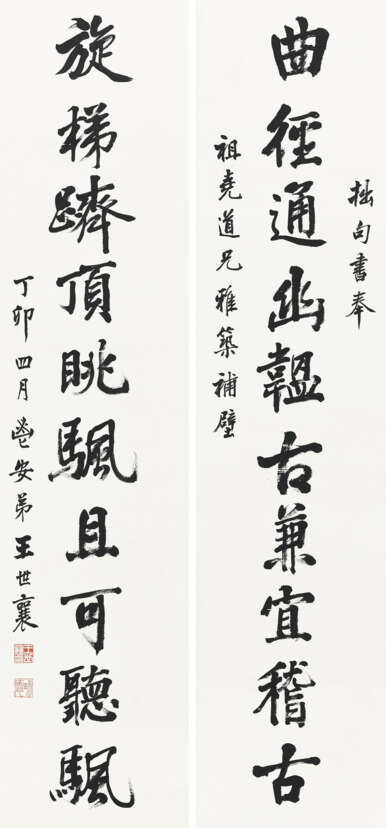 拙句書奉
曲徑通幽韞古兼宜稽古
祖堯道兄雅築補壁
旋梯躋頂眺颿且可聽颿
丁卯四月鬯安弟王世襄